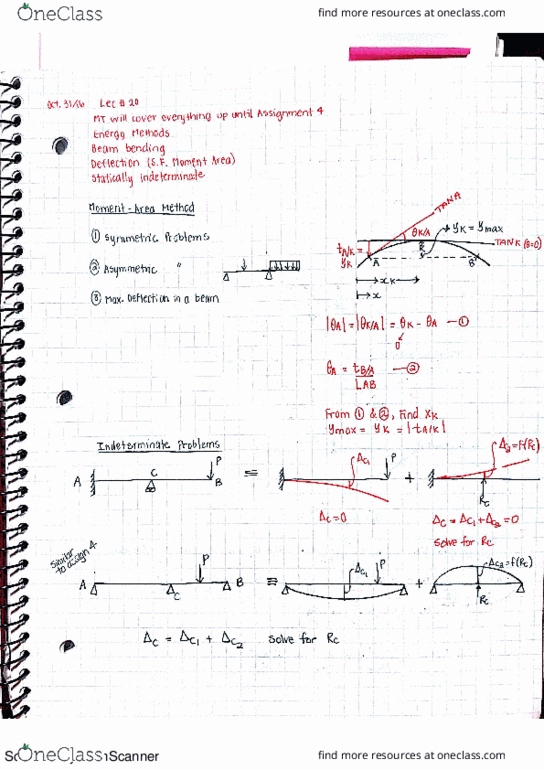 OneClass
find more resources at oneclass.com
Oct. 31/16 Lec # 20
MT will cover everything up until Assignment 4
Energy Methods
Beam bending
Deflection (S.F. Moment Area)
Statically Indeterminate
Moment-Area Method
① Symmetric Problems
② Asymmetric "
③ Max. Deflection in a beam
TAN A
θK/A
yK = ymax
TAN K (θ=0)
tA/K
yK
A
K
B
xK
x
|θA| = |θK/A| = θK - θA —①
0
θA = tB/A —②
LAB
From ① & ②, Find XK
ymax = yK = |tA/K|
Indeterminate Problems
A
C
P
B
≡
ΔC1
P
+
Δc2=f(Rc)
Rc
Δc=0
Δc = Δc1 + Δc2 = 0
Solve for Rc
Similar
to assign 4
A
C
P
B
≡
ΔC1
P
+
Δc2=f(Rc)
Rc
Δc = Δc1 + Δc2 Solve for Rc
OneClass
Scanner
find more resources at oneclass.com